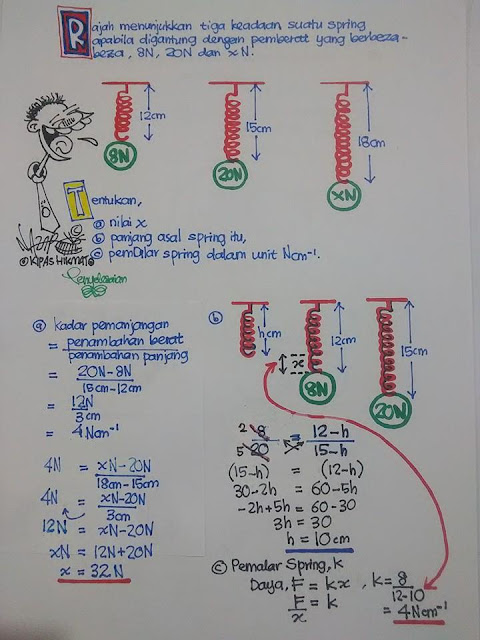 Rajah menunjukkan tiga keadaan suatu spring
apabila digantung dengan pemberat yang berbeza-
beza, 8N, 20N dan xN.
12cm
8N
15cm
20N
18cm
xN
Tentukan,
ⓐ nilai x
ⓑ panjang asal spring itu,
ⓒ pemalar spring dalam unit Ncm⁻¹.
©KIPASHIKMAT
Penyelesaian
ⓐ kadar pemanjangan
= penambahan berat
penambahan panjang
= 20N-8N
15cm-12cm
= 12N
3cm
= 4Ncm⁻¹
4N = xN-20N
18cm-15cm
4N = xN-20N
3cm
12N = xN-20N
xN = 12N+20N
x = 32N
ⓑ
hcm
x
12cm
8N
15cm
20N
2 8 = 12-h
5 20 15-h
(15-h) = (12-h)
30-2h = 60-5h
-2h+5h = 60-30
3h = 30
h = 10cm
ⓒ Pemalar Spring, k
Daya, F = kx , k = 8
12-10
F = k
x
= 4Ncm⁻¹